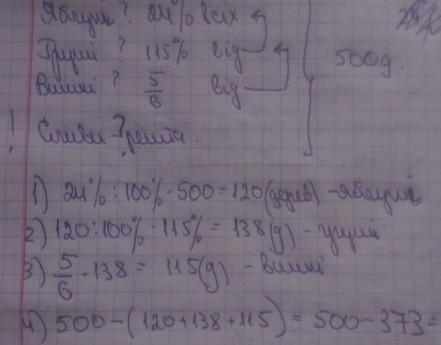 Яблуні ? 24% всіх
Груші ? 115% від
500д.
Вишні ? 5/6 від
! Сливи - ? решта.
1) 24% : 100% · 500 = 120 (дерев) - яблунь
2) 120 : 100% · 115% = 138 (д) - груші
3) 5/6 · 138 = 115 (д) - вишні
4) 500 - (120 + 138 + 115) = 500 - 373 =